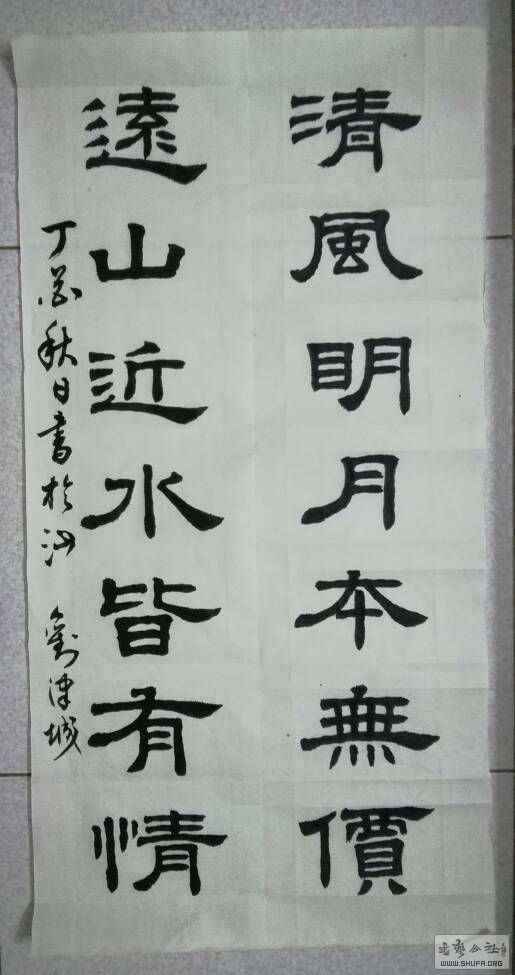 清風明月本無價
遠山近水皆有情
丁酉秋日書於沙 劉津城
WWW.SHUFA.ORG